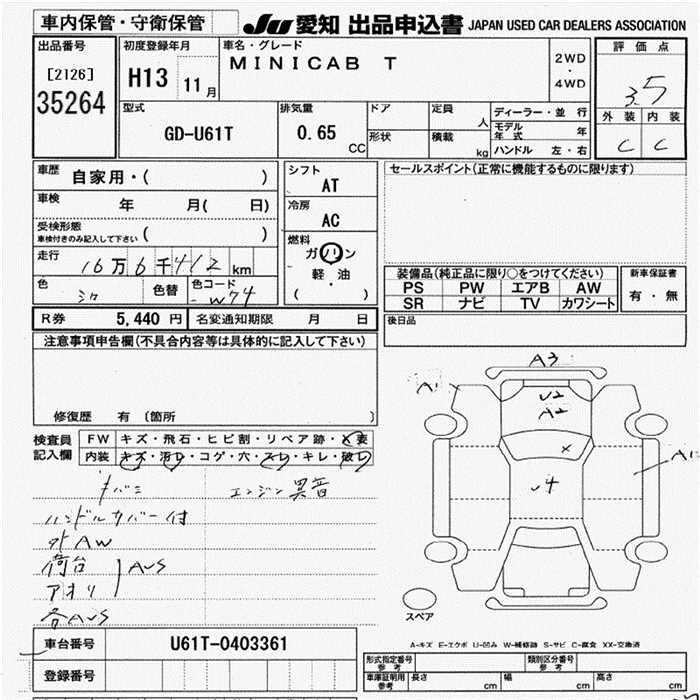 車内保管・守衛保管 JU 愛知 出品申込書 JAPAN USED CAR DEALERS ASSOCIATION
出品番号 初度登録年月 車名・グレード 評価点
[2126] H13 11月 MINICAB T 2WD・4WD 3.5
35264
型式 排気量 ドア 定員 ディーラー・並行 外装 内装
GD-U61T 0.65 CC 形状 人 積載 kg モデル年式 年 C C
ハンドル 左・右
車歴 自家用・( ) シフト AT セールスポイント(正常に機能するものに限ります)
車検 年 月( 日) 冷房 AC
受検形態 車検付きのみ記入して下さい ( ) 燃料 ガソリン・軽油
走行 16万6千412km ( )
装備品(純正品に限り○をつけてください) 新車保証書
PS PW エアB AW 有・無
SR ナビ TV カワシート
色 シロ 色替 色コード W74
R券 5,440 円 名変通知期限 月 日 後日品
注意事項申告欄(不具合内容等は具体的に記入して下さい)
修復歴 有 〔箇所 〕
検査員記入欄 FW キズ・飛石・ヒビ割・リペア跡・×要
内装 キズ・汚レ・コゲ・穴・スレ・キレ・破レ
キバミ エンジン異音
ハンドルカバー付
外AW
荷台 AUS
アオリ
各AUS
A3
A1
U2
A2
×
U4
A1
スペア
A-キズ E-エクボ U-凹み W-補修跡 S-サビ C-腐食 XX-交換済
車台番号 U61T-0403361
登録番号
型式指定番号 参考 類別区分番号 参考
車庫証明用 参考 長さ cm 幅 cm 高さ cm